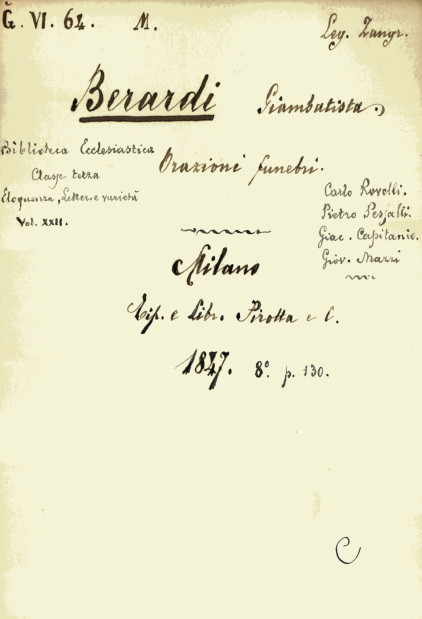 Ğ. VI. 64. M. Leg. Zangr.
Berardi Giambatista.
Biblioteca Ecclesiastica
Classe terza
Eloquenza, Letter. e varietà
Vol. XXII.
Orazioni funebri.
Carlo Rovelli.
Pietro Pesjatti.
Giac. Capitanio.
Giov. Mazzi
Milano
Tip. e Libr. Pirotta e C.
1847. 8º. p. 130.
C